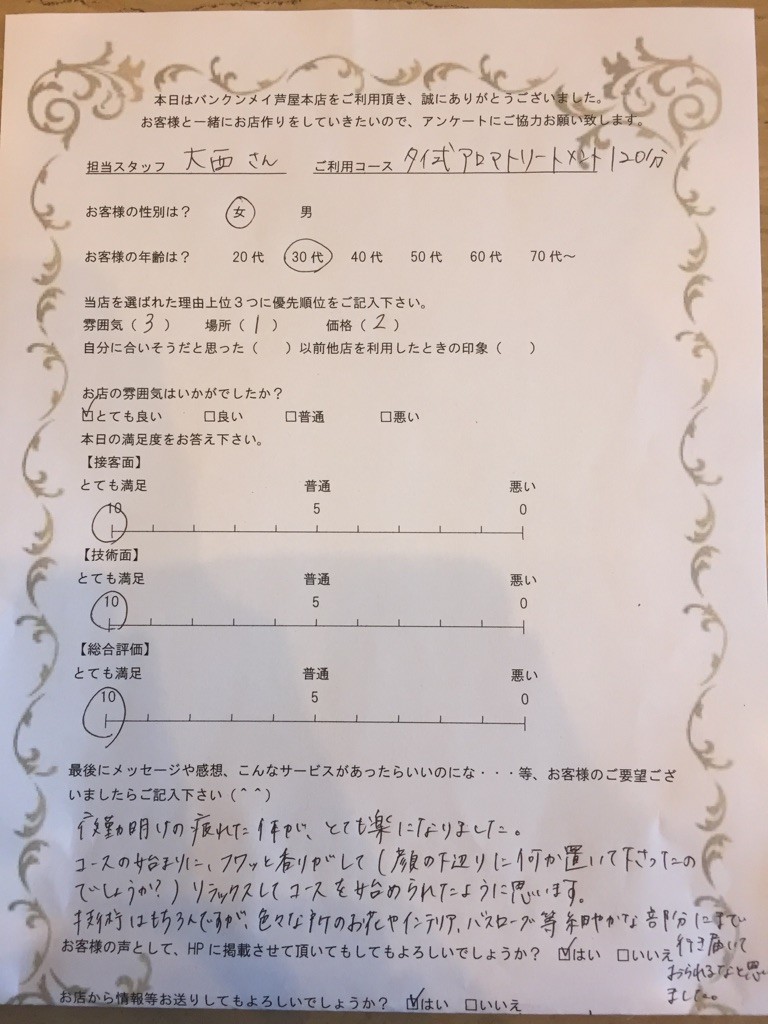 本日はバンクンメイ芦屋本店をご利用頂き、誠にありがとうございました。
お客様と一緒にお店作りをしていきたいので、アンケートにご協力お願い致します。
担当スタッフ 大西さん ご利用コース タイ式アロマトリートメント120分
お客様の性別は? 女 男
お客様の年齢は? 20代 30代 40代 50代 60代 70代~
当店を選ばれた理由上位3つに優先順位をご記入下さい。
雰囲気(3) 場所(1) 価格(2)
自分に合いそうだと思った( )以前他店を利用したときの印象( )
お店の雰囲気はいかがでしたか?
☑とても良い □良い □普通 □悪い
本日の満足度をお答え下さい。
【接客面】
とても満足 普通 悪い
10 5 0
【技術面】
とても満足 普通 悪い
10 5 0
【総合評価】
とても満足 普通 悪い
10 5 0
最後にメッセージや感想、こんなサービスがあったらいいのにな・・・等、お客様のご要望ござ
いましたらご記入下さい(^^)
夜勤明けの疲れた体が、とても楽になりました。
コースの始まりに、フワッと香りがして(顔の下辺りに何か置いて下さったの
でしょうか?)リラックスしてコースを始められたように思います。
技術はもちろんですが、色々な所のお花やインテリア、バスローブ等細やかな部分にまで
行き届いて
おられるなと思い
ました。
お客様の声として、HPに掲載させて頂いてもしてもよろしいでしょうか? ☑はい □いいえ
お店から情報等お送りしてもよろしいでしょうか? ☑はい □いいえ